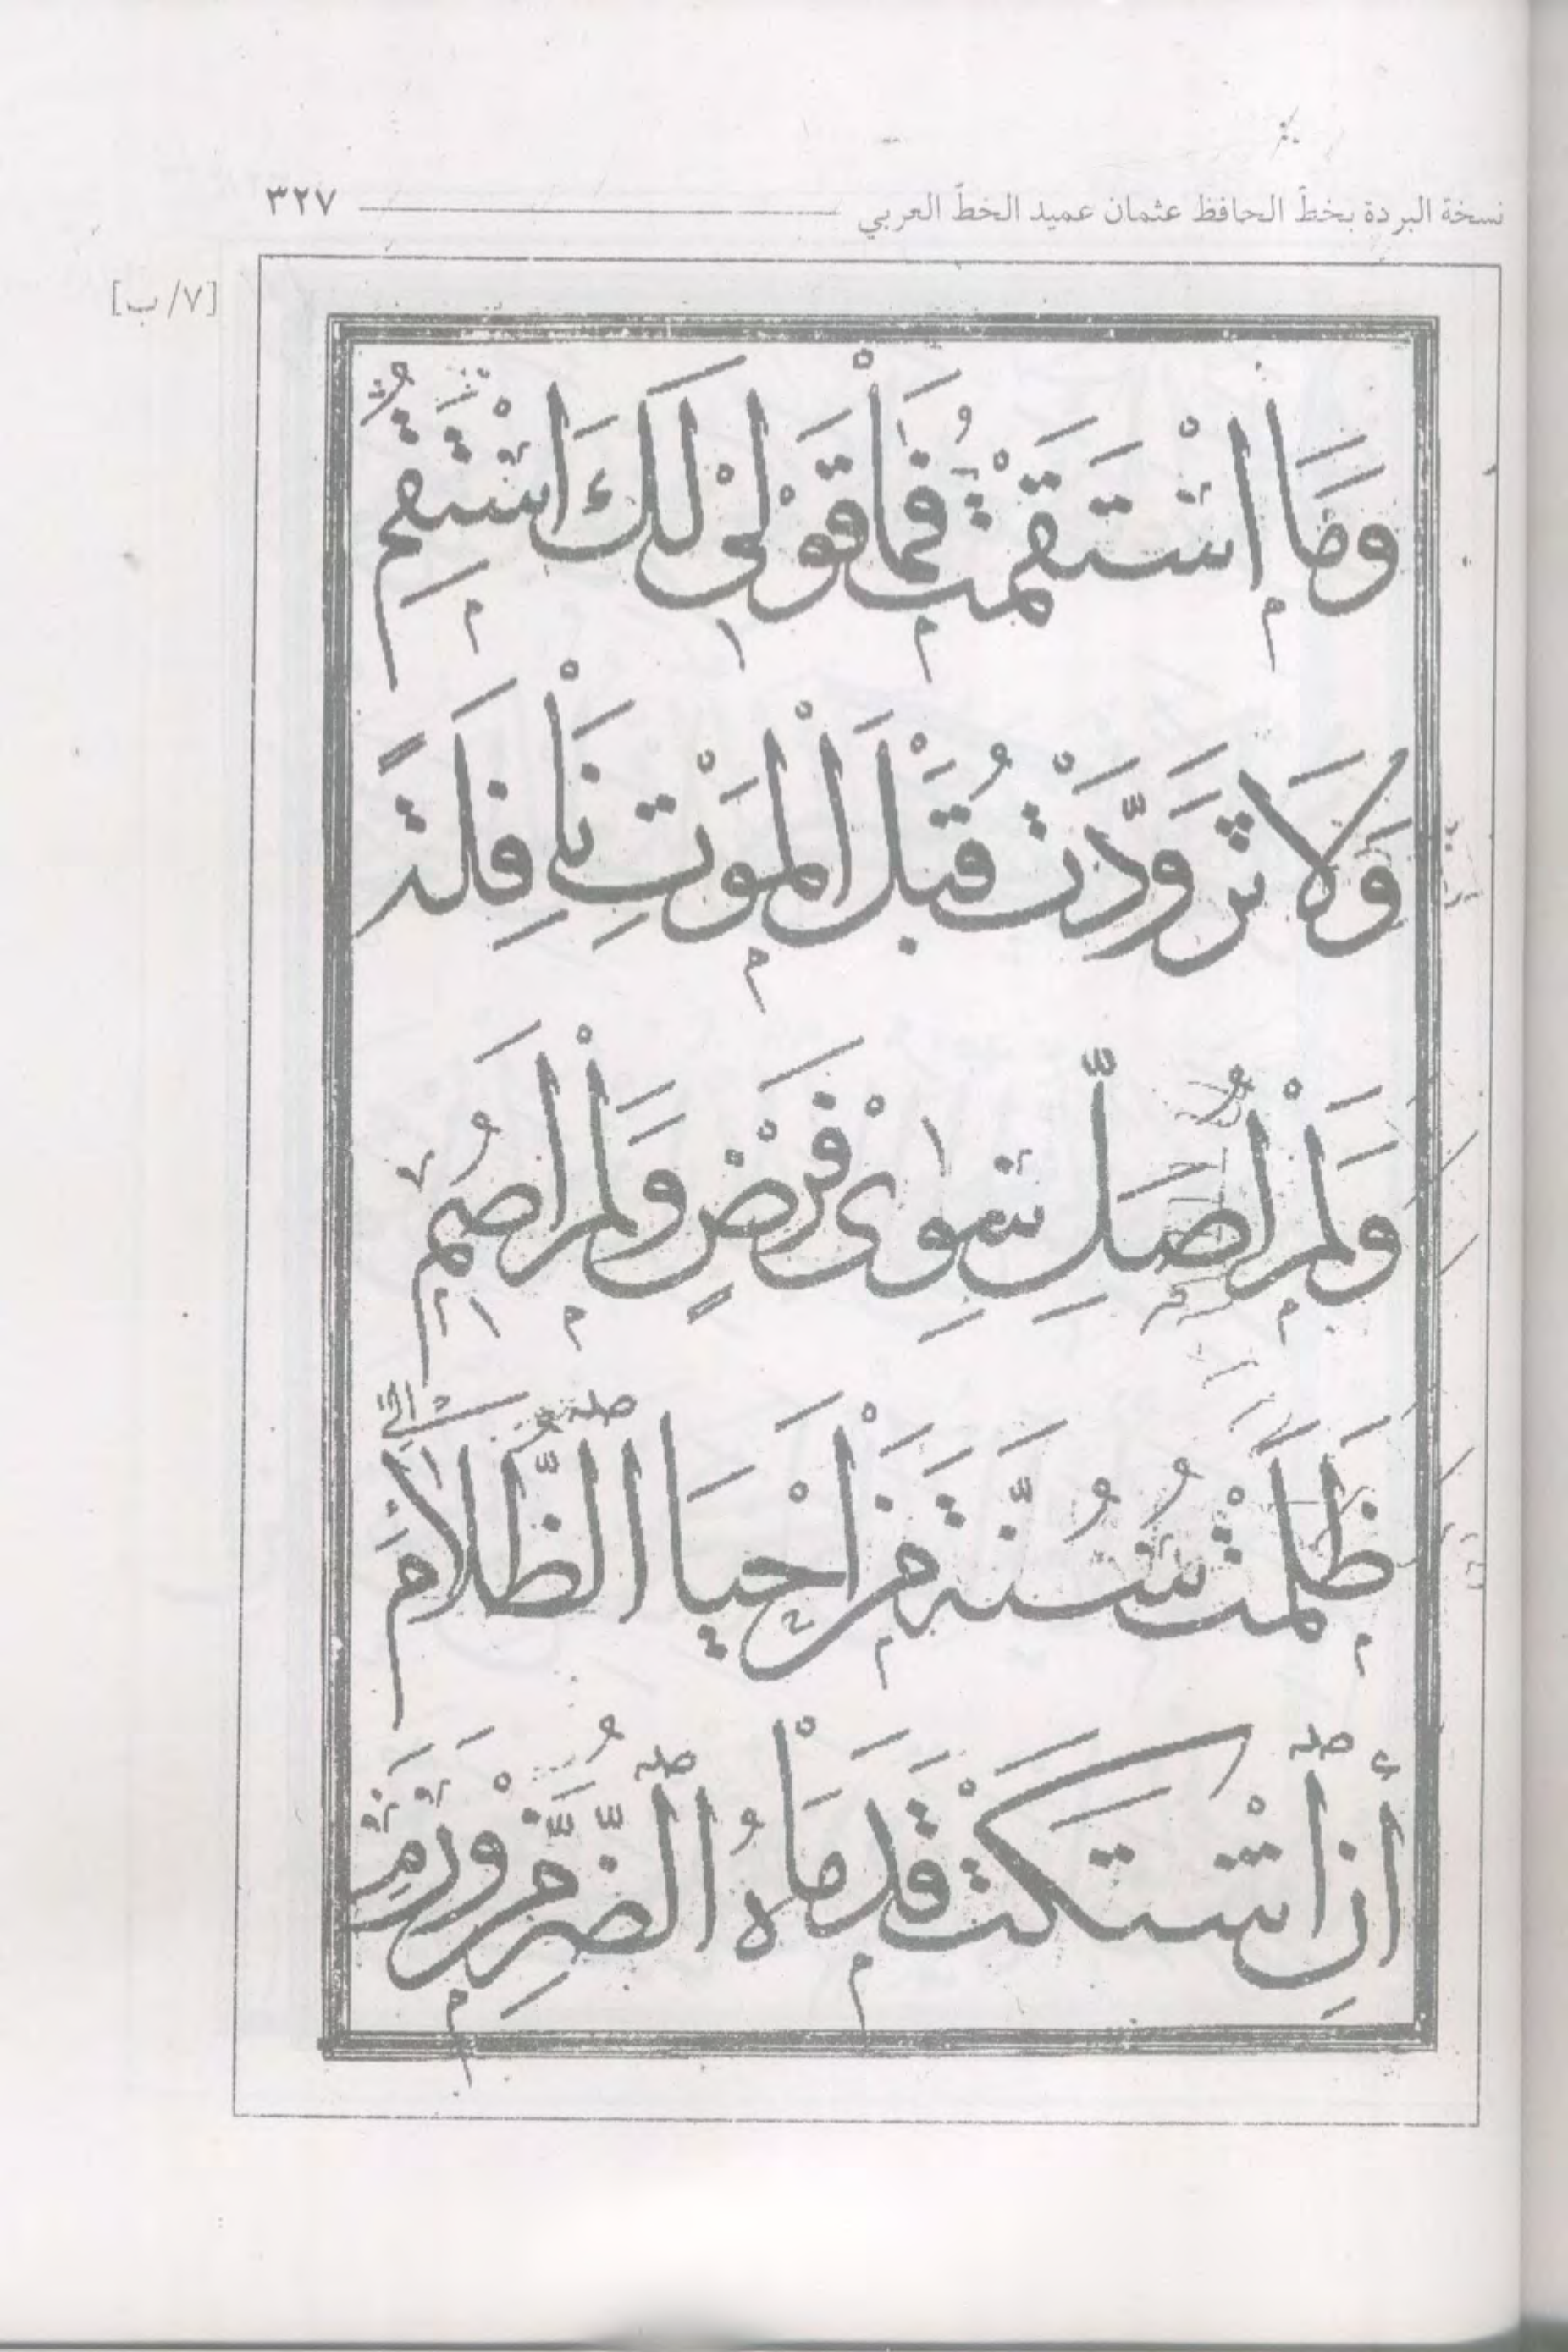 نسخة البردة بخطّ الحافظ عثمان عميد الخطّ العربي ٣٢٧
[٧/ ب]
وَمَا اسْتَقَمْتُ فَمَا قَوْلِيْ لَكَ اسْتَقِمِ
وَلَا تَزَوَّدْتُ قَبْلَ الْمَوْتِ نَافِلَةً
وَلَمْ اُصَلِّ سِوٰى فَرْضٍ وَلَمْ اَصُمِ
ظَلَمْتُ سُنَّةَ مَنْ اَحْيَا الظَّلَامَ
أَنِ اشْتَكَتْ قَدَمَاهُ الضُّرَّ مِنْ وَرَمِ